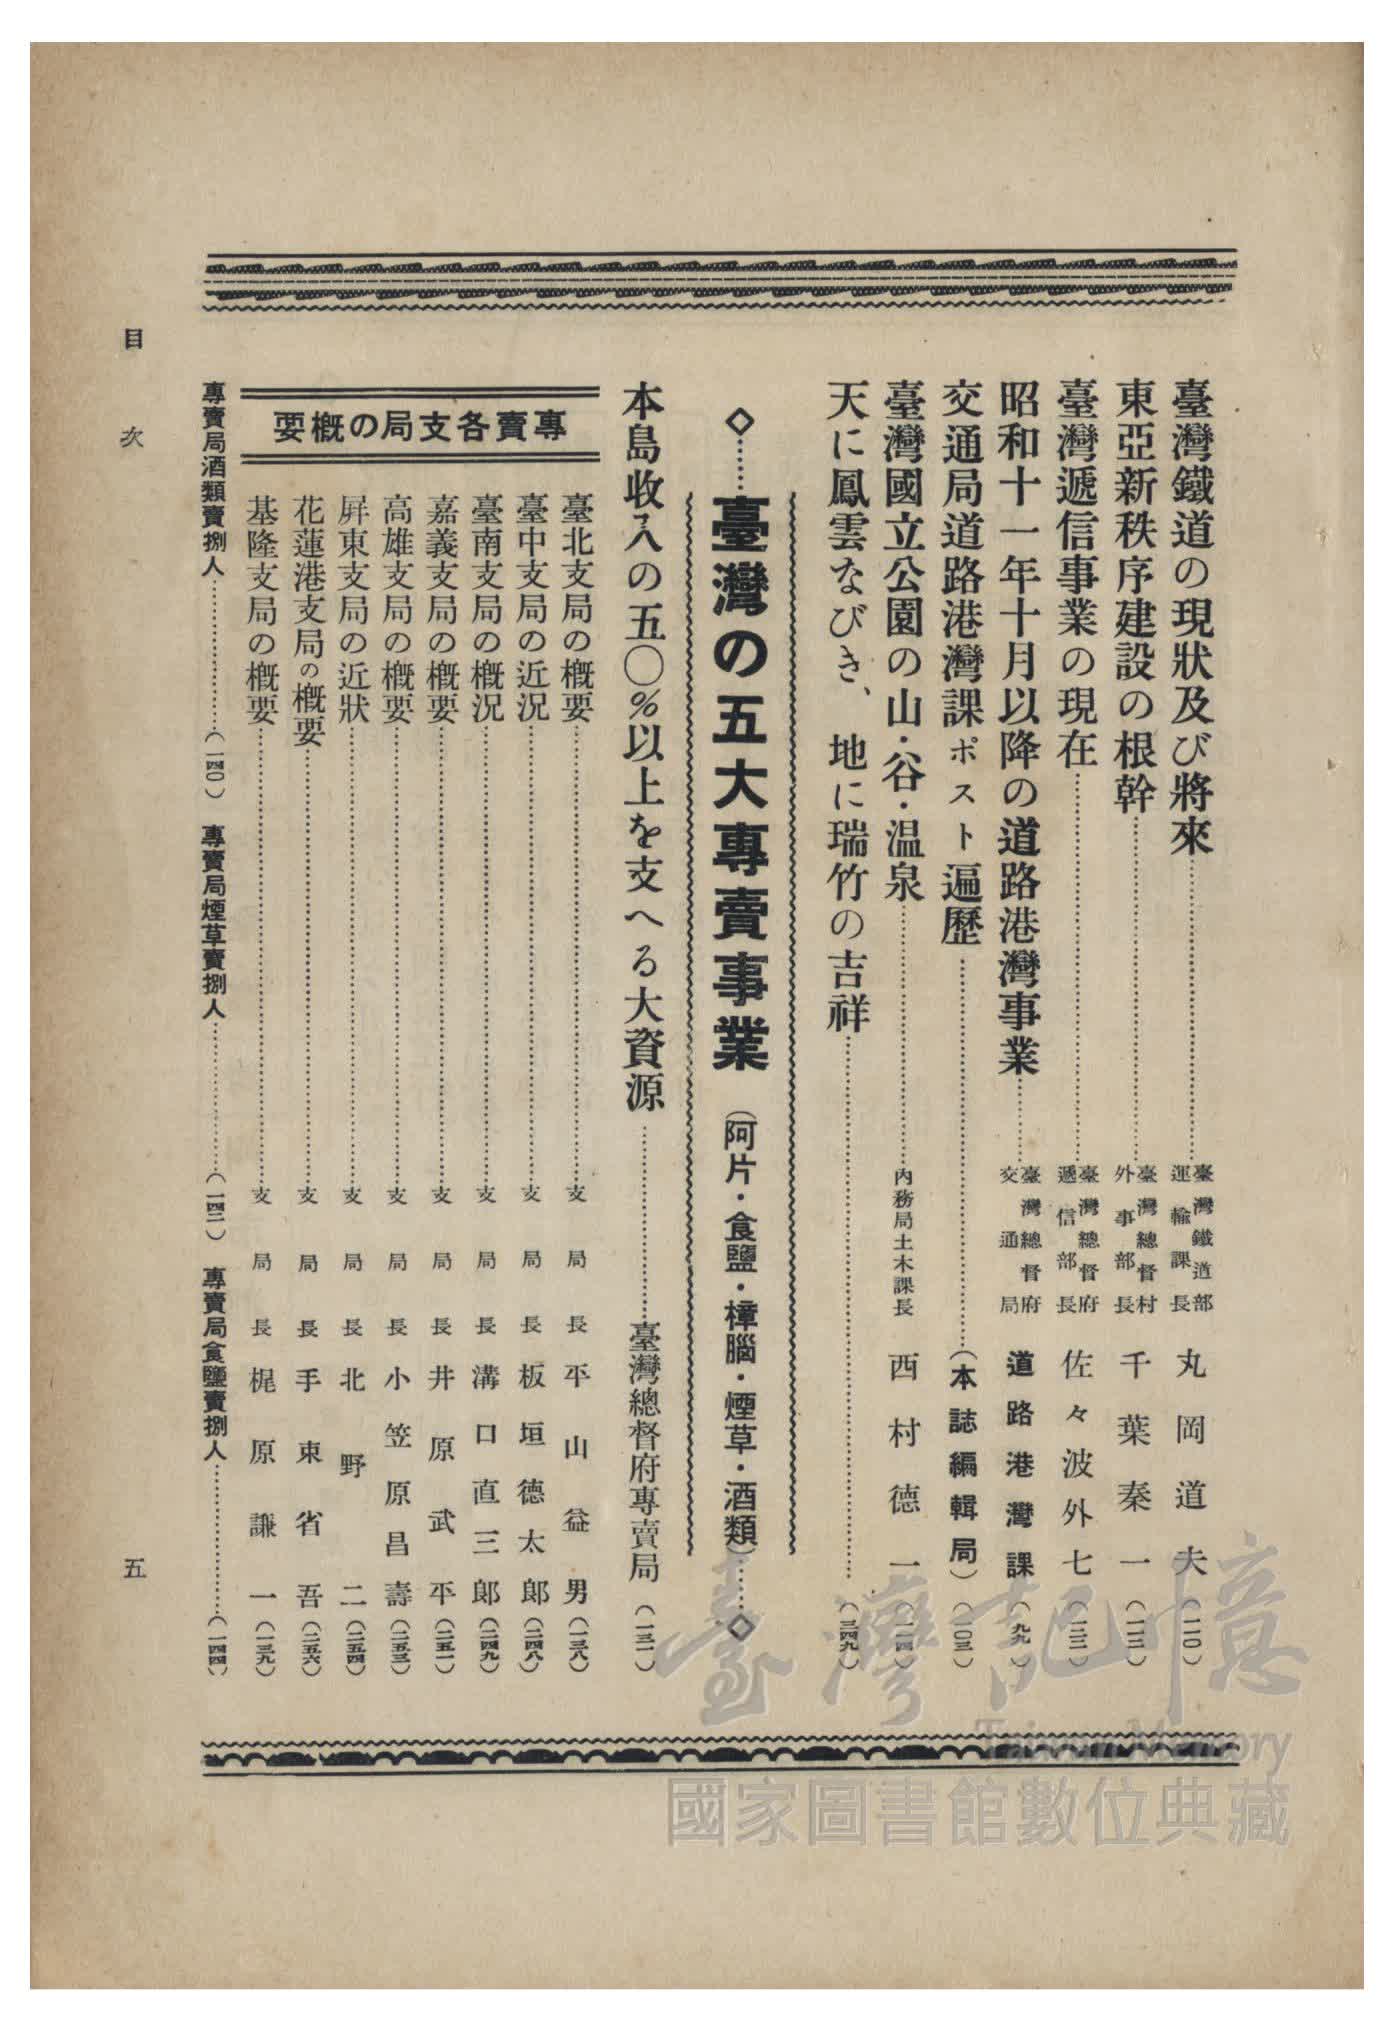 臺灣鐵道の現狀及び將來………臺灣鐵道部運輸課長 丸岡道夫（一一〇）
東亞新秩序建設の根幹………臺灣總督村外事部長 千葉秦一（一一三）
臺灣遞信事業の現在………臺灣總督府遞信部長 佐々波外七（一三三）
昭和十一年十月以降の道路港灣事業………臺灣總督府交通局 道路港灣課（九九）
交通局道路港灣課ポスト遍歷………（本誌編輯局）（一〇三）
臺灣國立公園の山・谷・温泉………內務局土木課長 西村德一
天に鳳雲なびき、地に瑞竹の吉祥………（三四九）
◇……臺灣の五大專賣事業（阿片・食鹽・樟腦・煙草・酒類）……◇
本島收入の五〇％以上を支へる大資源………臺灣總督府專賣局（一三一）
專賣各支局の槪要
臺北支局の槪要………支局長 平山益男（一三八）
臺中支局の近況………支局長 板垣德太郎（二四八）
臺南支局の槪況………支局長 溝口直三郎（二四九）
嘉義支局の槪要………支局長 井原武平（二五一）
高雄支局の槪要………支局長 小笠原昌壽（二五三）
屛東支局の近狀………支局長 北野二（二五四）
花蓮港支局の槪要………支局長 手東省吾（二五六）
基隆支局の槪要………支局長 梶原謙一（一三九）
專賣局酒類賣捌人………（一四〇） 專賣局煙草賣捌人………（一四二） 專賣局食鹽賣捌人………（一四四）
目次
五
臺灣記憶
Taiwan Memory
國家圖書館數位典藏